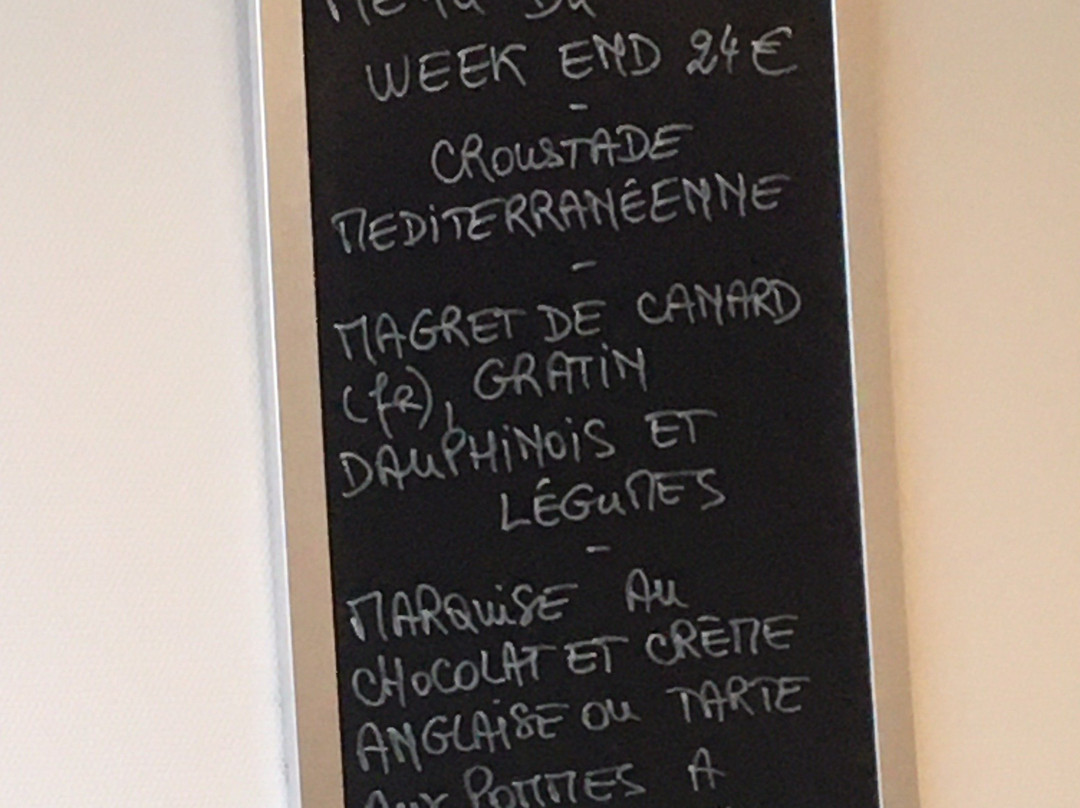 MENU DU
WEEK END 24€
-
CROUSTADE
MEDITERRANÉENNE
-
MAGRET DE CANARD
(FR), GRATIN
DAUPHINOIS ET
LÉGUMES
-
MARQUISE AU
CHOCOLAT ET CRÈME
ANGLAISE OU TARTE
AUX POMMES A